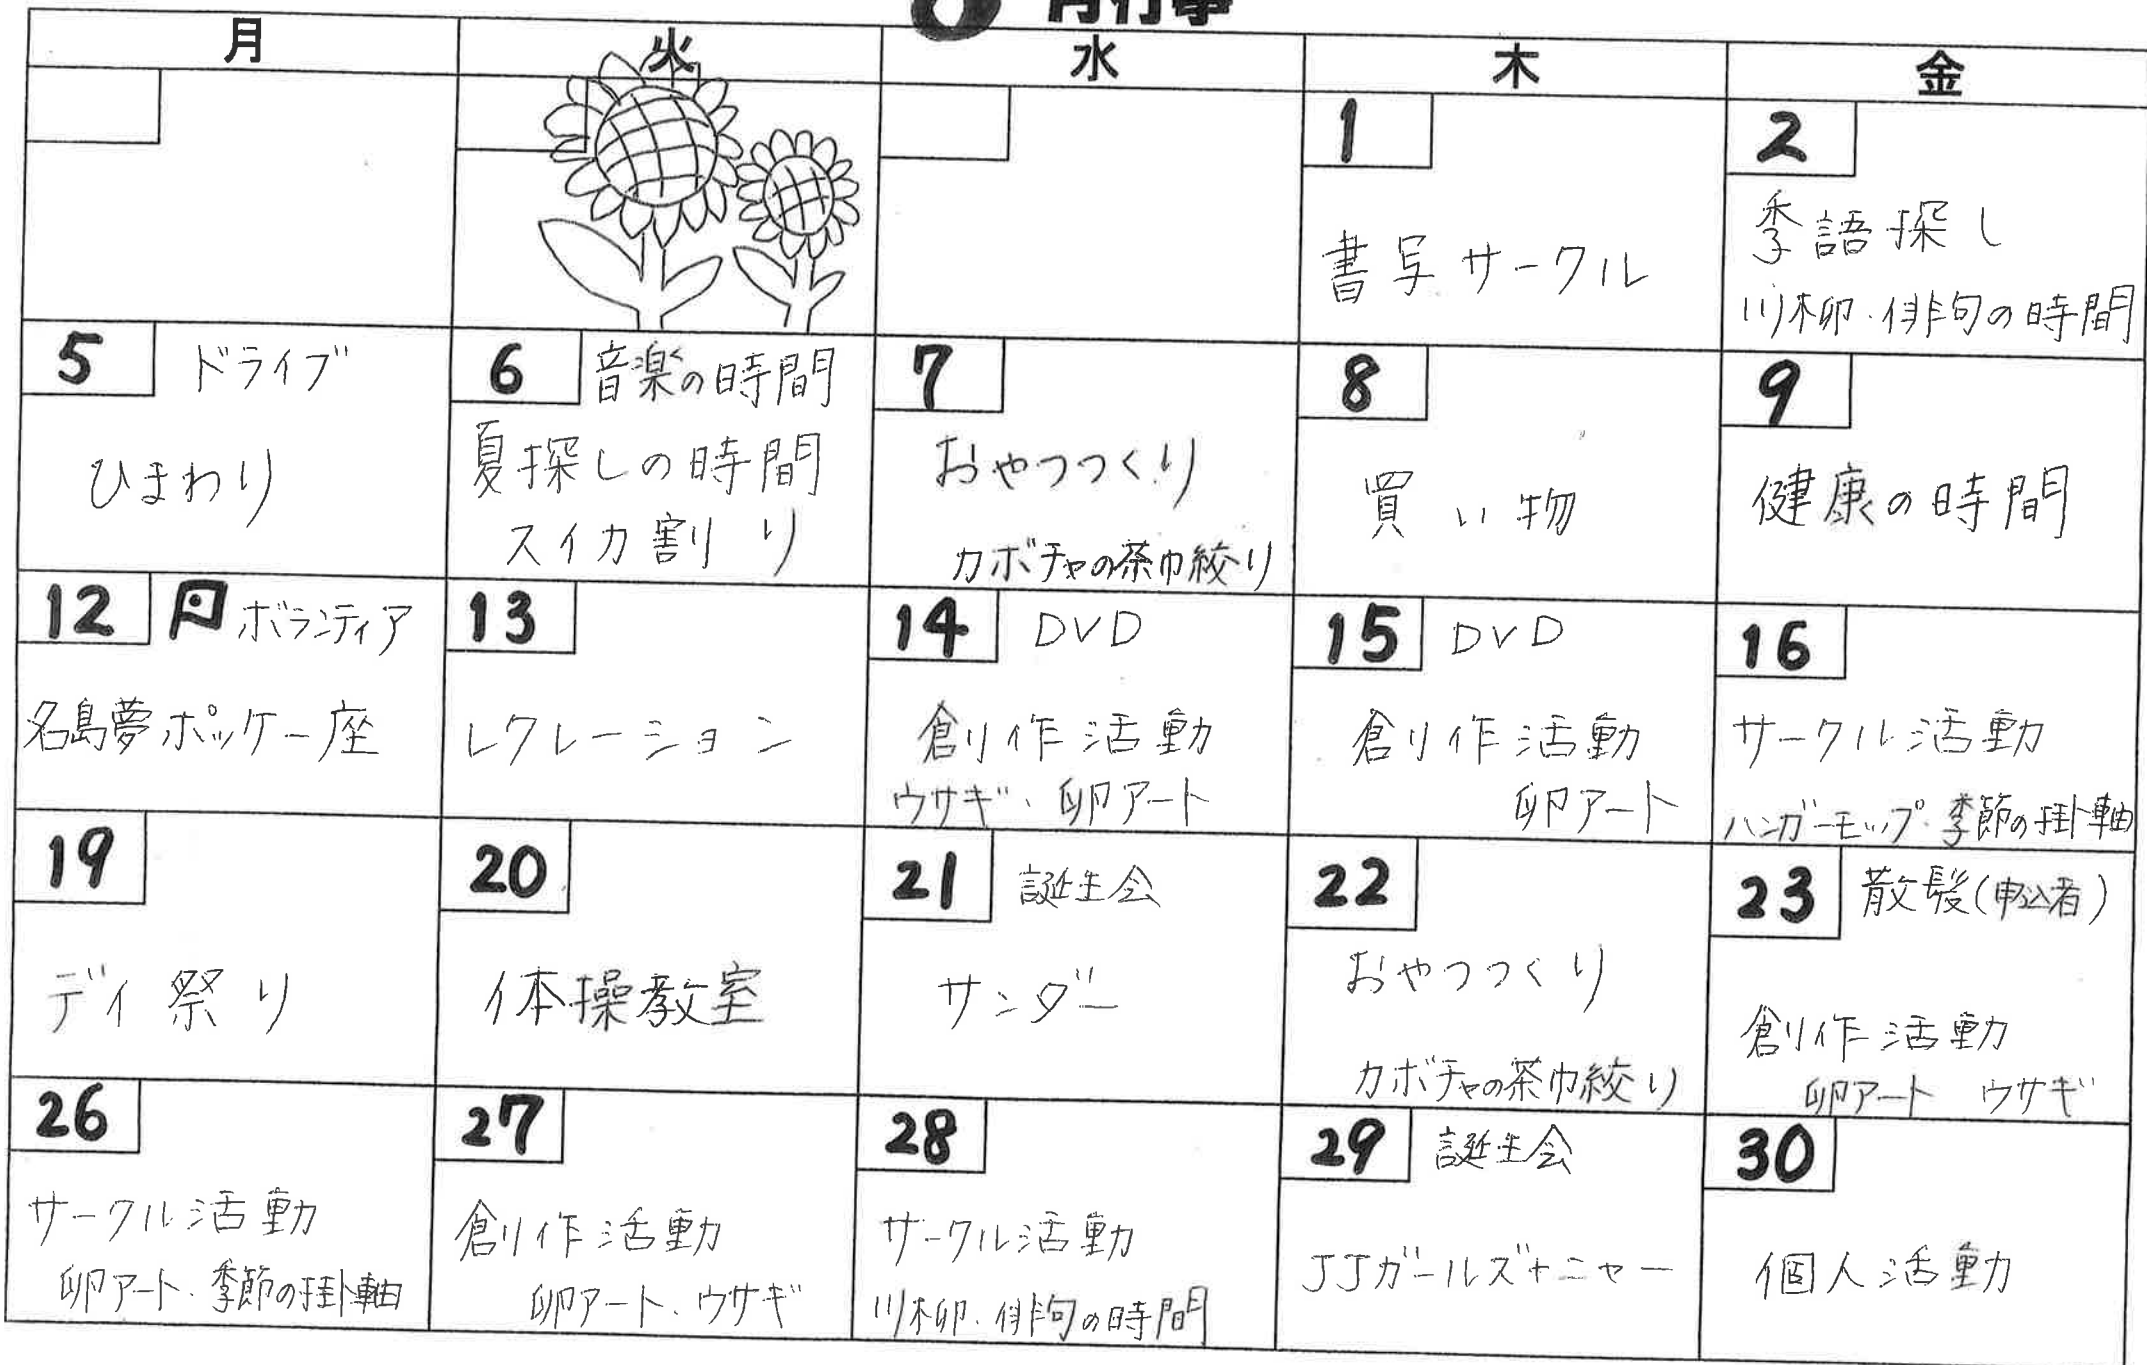 月行事
月 火 水 木 金
1
書写サークル
2
季語探し
川柳・俳句の時間
5 ドライブ
ひまわり
6 音楽の時間
夏探しの時間
スイカ割り
7
おやつつくり
カボチャの茶巾絞り
8
買い物
9
健康の時間
12 ボランティア
名島夢ポッケー座
13
レクレーション
14 DVD
創作活動
ウサギ・卵アート
15 DVD
創作活動
卵アート
16
サークル活動
ハンガーモップ・季節の掛軸
19
デイ祭り
20
体操教室
21 誕生会
サンダー
22
おやつつくり
カボチャの茶巾絞り
23 散髪(申込者)
創作活動
卵アート ウサギ
26
サークル活動
卵アート・季節の掛軸
27
創作活動
卵アート・ウサギ
28
サークル活動
川柳・俳句の時間
29 誕生会
JJガールズ+ニャー
30
個人活動